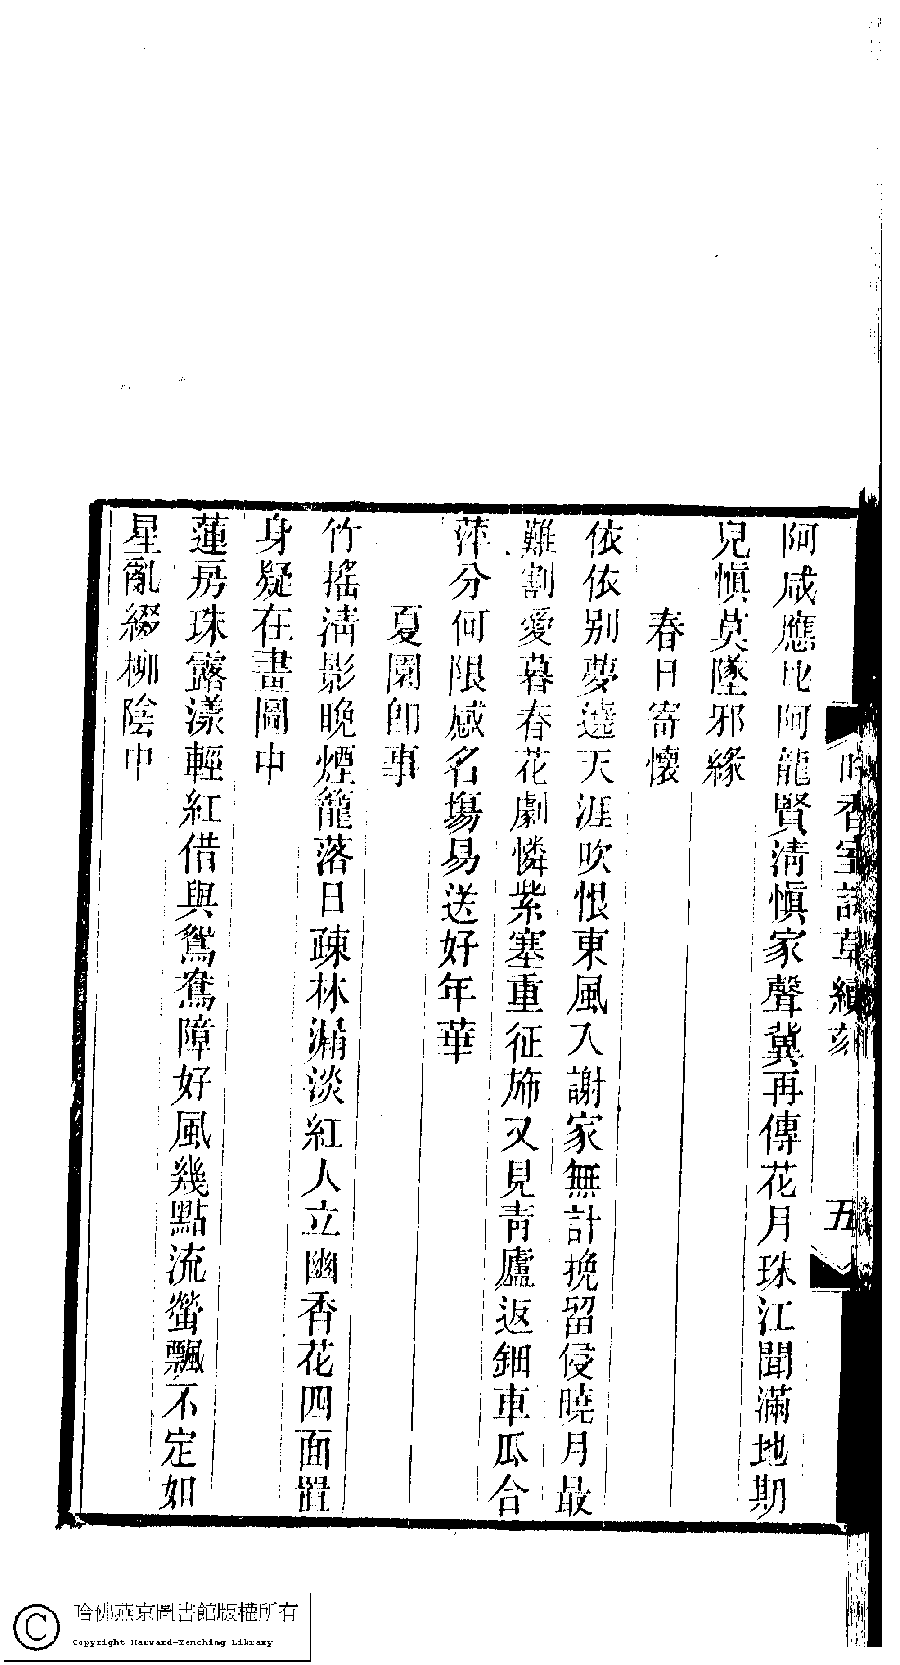 阿咸應比阿龍賢清慎家聲冀再傳花月珠江聞滿地期
兒慎莫墜邪緣
春日寄懷
依依別夢遶天涯吹恨東風入謝家無計挽留侵曉月最
難割愛暮春花劇憐紫塞重征旆又見青廬返鈿車瓜合
萍分何限感名塲易送好年華
夏園卽事
竹搖清影晚煙籠落日疎林漏淡紅人立幽香花四面置
身疑在畫圖中
蓮房珠露漾輕紅借與鴛鴦障好風幾點流螢飄不定如
星亂綴柳陰中
香室詩草續刻
五
哈佛燕京圖書館版權所有
Copyright Harvard-Yenching Library